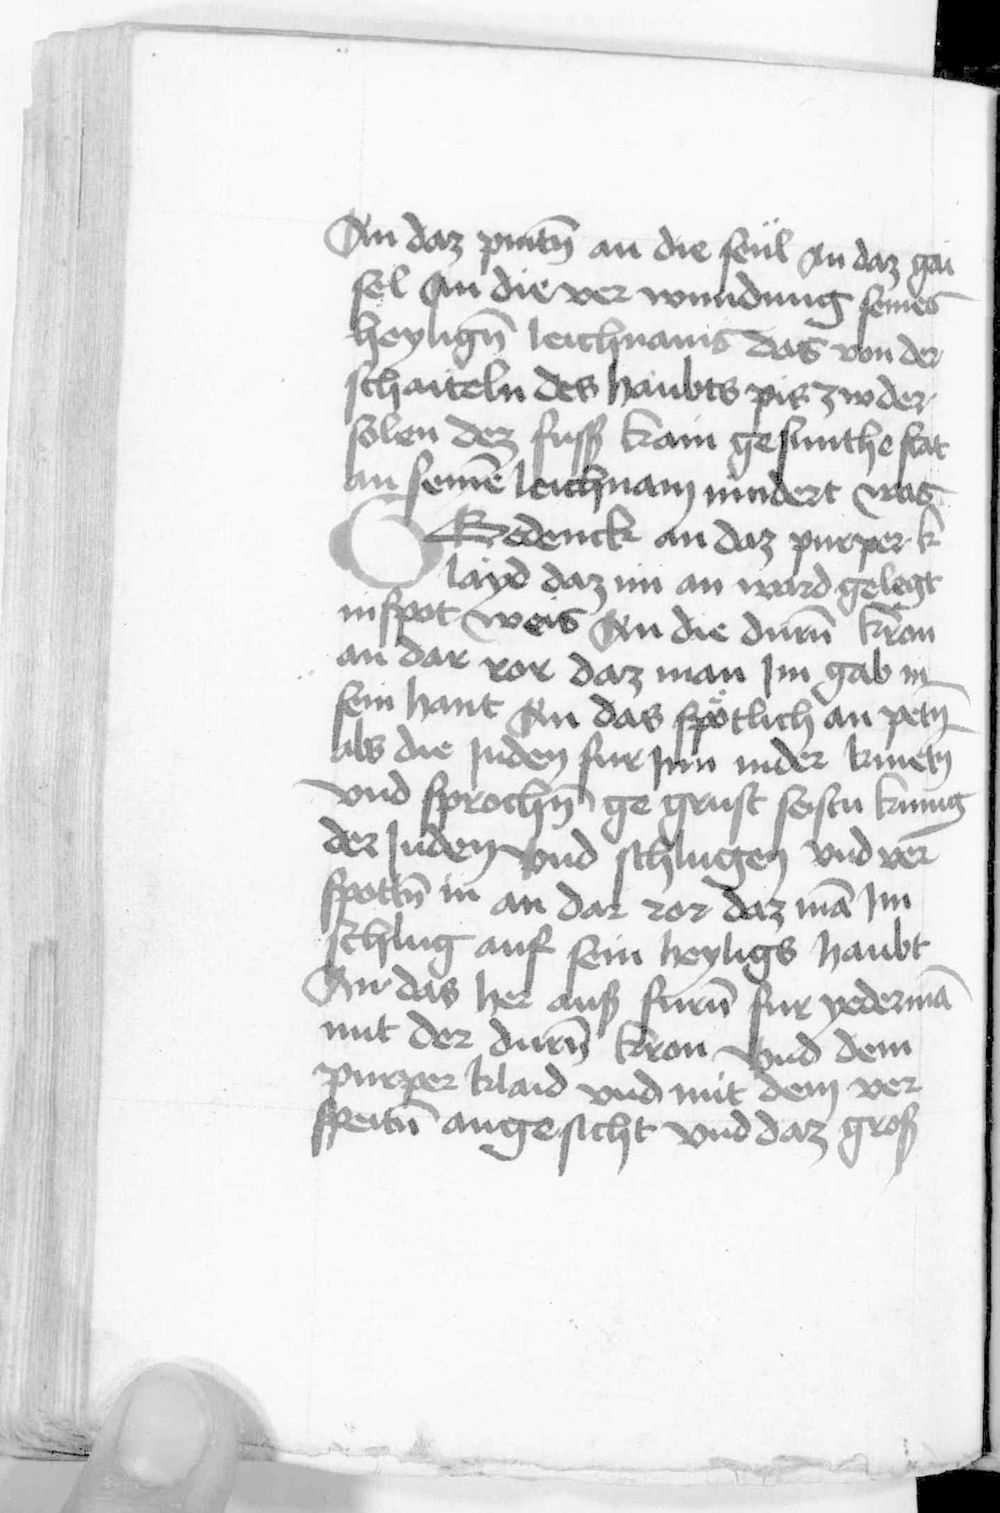 An daz pintn̄ an die seül An daz gai
sel An die ver wundung seines
heylign̄ leichnams das von der
schaiteln des haubts pis zw der
solen dez fuss kain gesunthe stat
an seinē leichnam nindert was
Gedenck an daz purper k
layd daz im an ward gelegt
in spot weis An die durn̄ kron
an dar ror daz man Im gab in
sein hant An das spötlich an petn̄
als die Juden fur Inn nider knietn
vnd sprochn̄ ge grust seistu kunig
der Juden vnd schlugen vnd ver
spottn̄ in an dar ror daz mā Im
schlug auf sein heyligs haubt
An das her auß furn̄ fur yedermā
mit der durn̄ kron vnd dem
purper klaid vnd mit dem ver
speitn̄ angesicht vnd daz groß